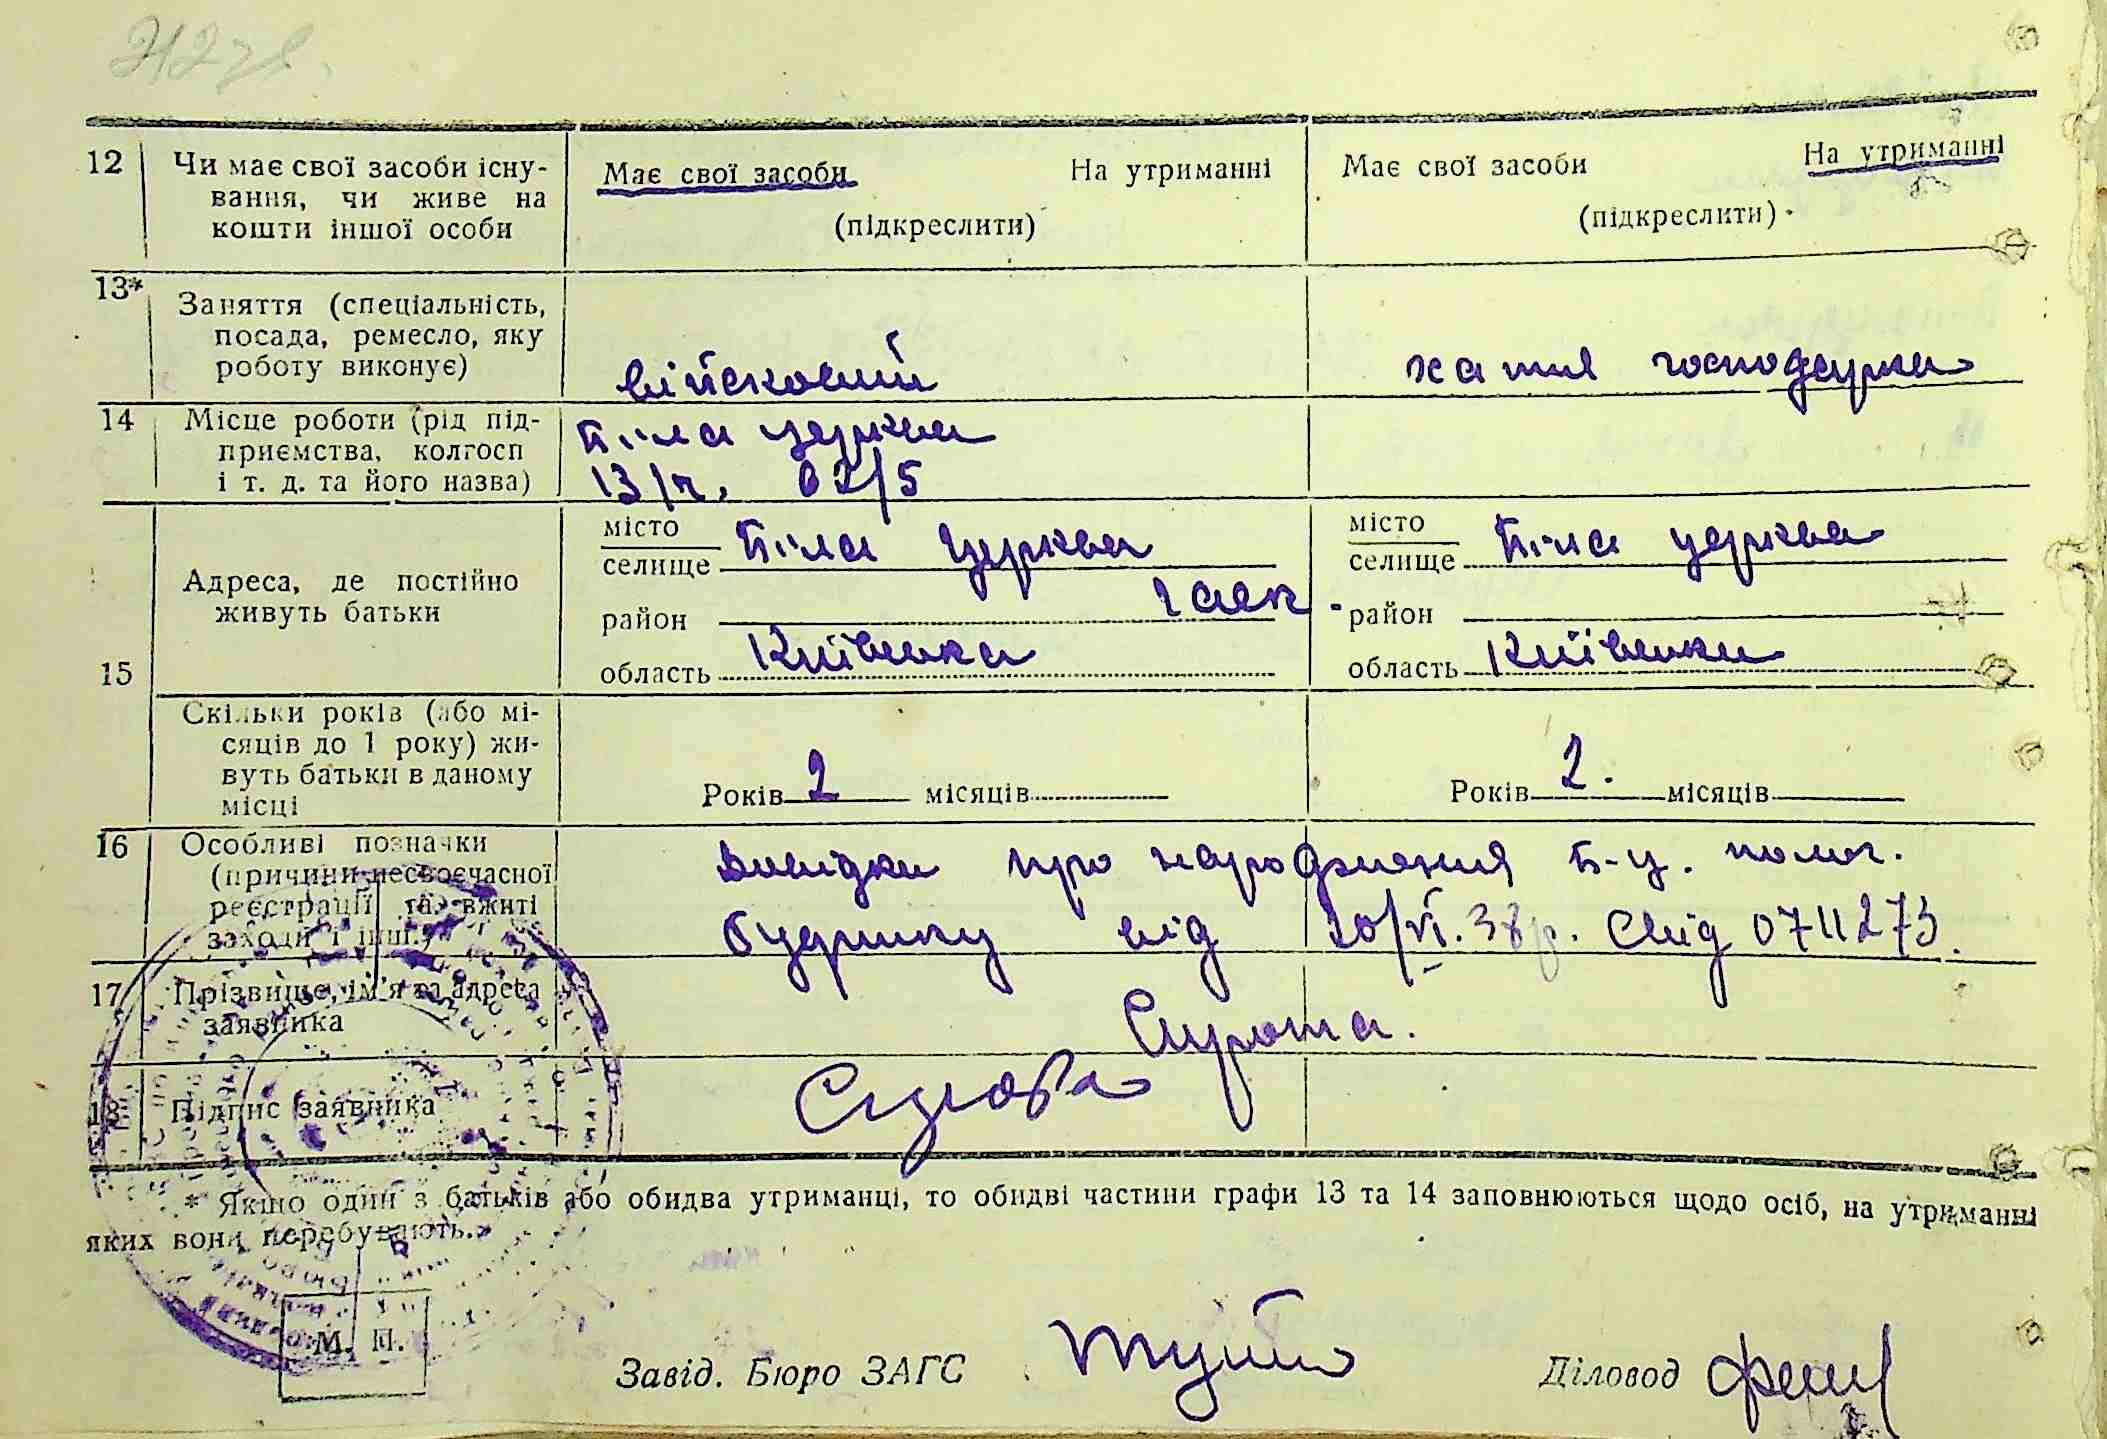 12 Чи має свої засоби існу- Має свої засоби На утриманні Має свої засоби На утриманні
вання, чи живе на
кошти іншої особи (підкреслити) (підкреслити)
13* Заняття (спеціальність,
посада, ремесло, яку
роботу виконує) військовий хатня господарка
14 Місце роботи (рід під- Біла церква
приємства, колгосп
і т. д. та його назва) 13/ч. 02/5
місто Біла Церква місто Біла церква
селище селище
15 Адреса, де постійно
живуть батьки район Гаєк район
область Київська область Київська
Скільки років (або мі-
сяців до 1 року) жи-
вуть батьки в даному Років 2 місяців Років 2. місяців
місці
16 Особливі позначки Довідка про народження Б-ц. полог.
(причини несвоєчасної
реєстрації та вжиті будинку від 20/VI.38р. Свід 0711273.
заходи і інш.)
17 Прізвище, ім'я та адреса
заявника Сирота.
18 Підпис заявника Сирота
* Якщо один з батьків або обидва утриманці, то обидві частини графи 13 та 14 заповнюються щодо осіб, на утриманні
яких вони перебувають.
М. П.
Завід. Бюро ЗАГС Діловод